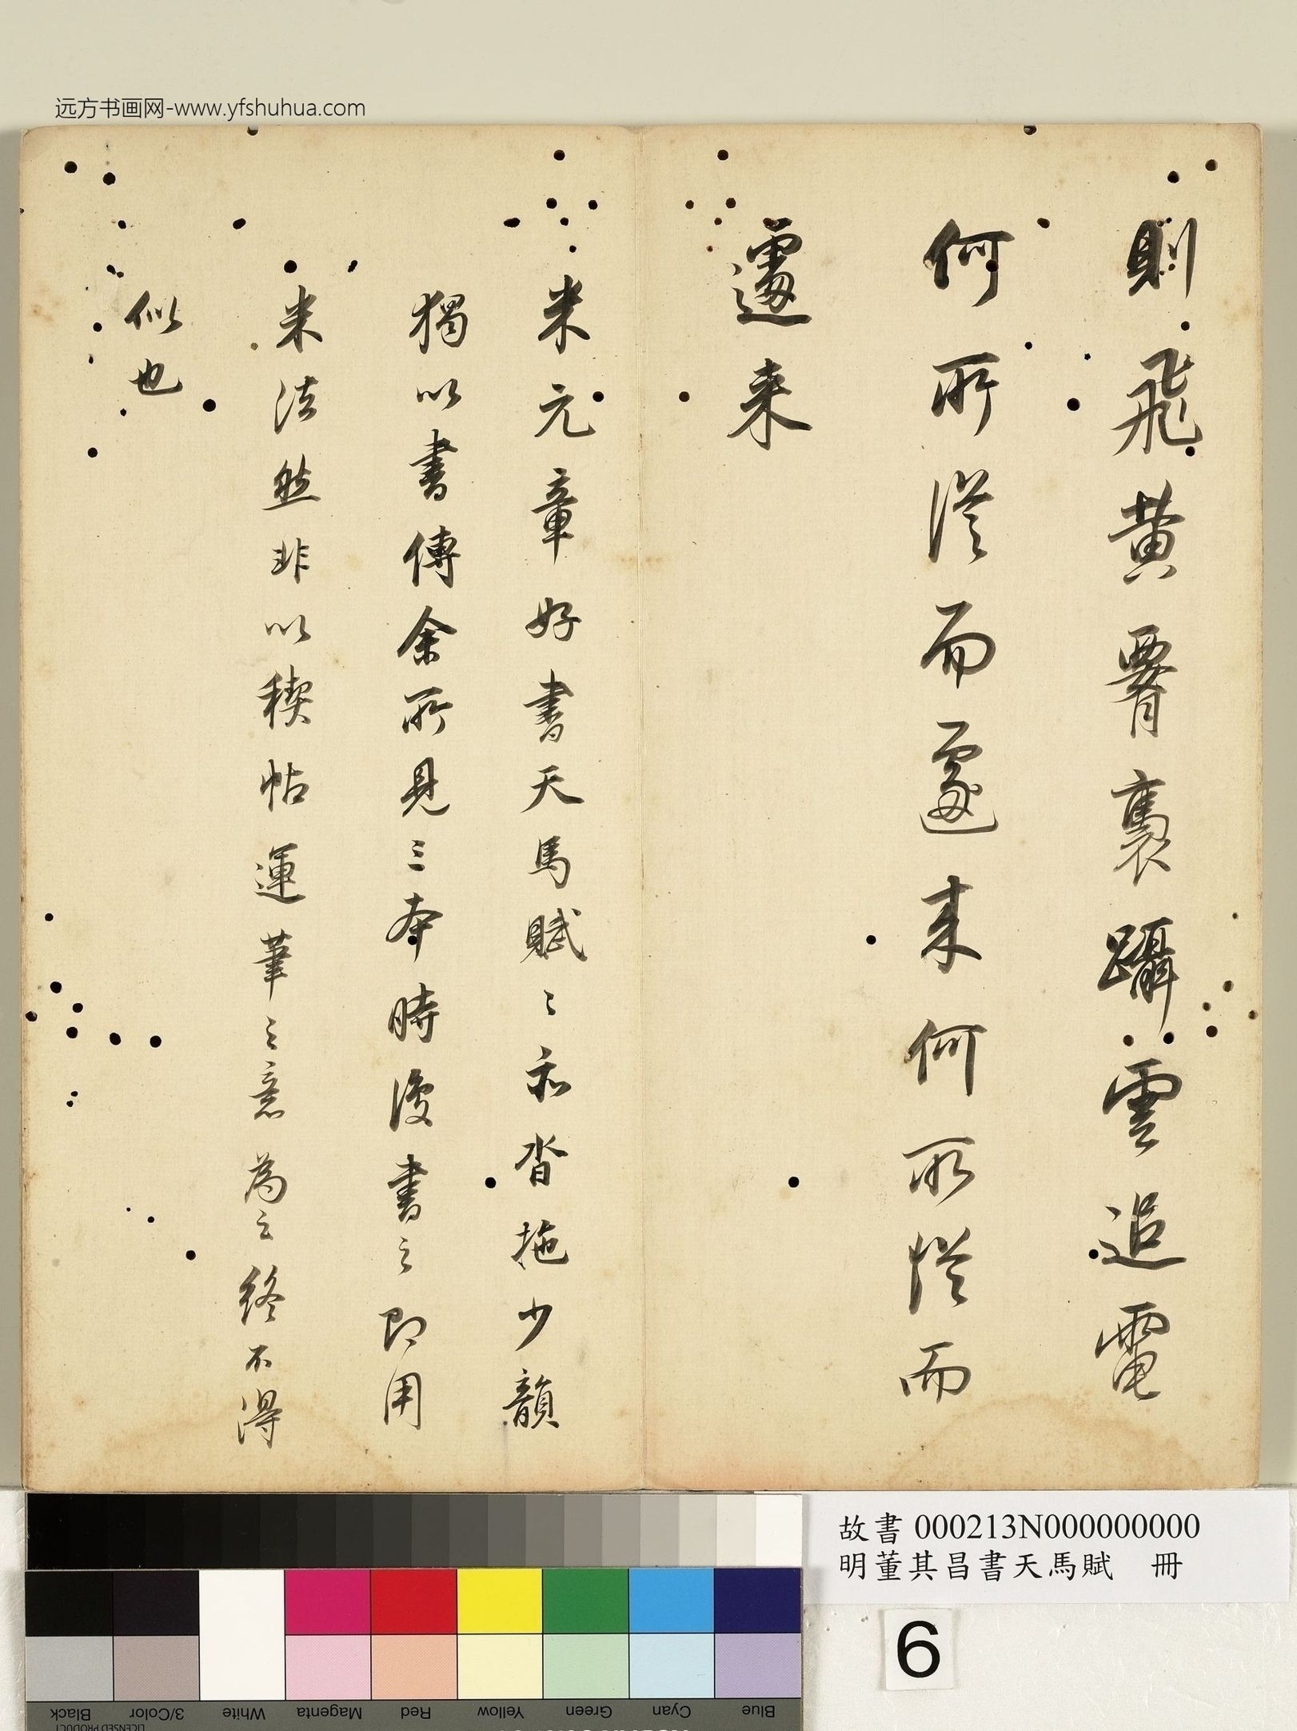 远方书画网-www.yfshuhua.com
則飛黃騕褭躡雲追電
何所從而遽来何所從而
遽来
米元章好書天馬賦〻和沓拖少韻
獨以書傳余所見三本時復書之即用
米法然非以禊帖運筆之意為之終不得
似也
故書 000213N000000000
明董其昌書天馬賦 冊
6
Black
3/Color
White
Magenta
Red
Yellow
Green
Cyan
Blue
LICENSED PRODUCT